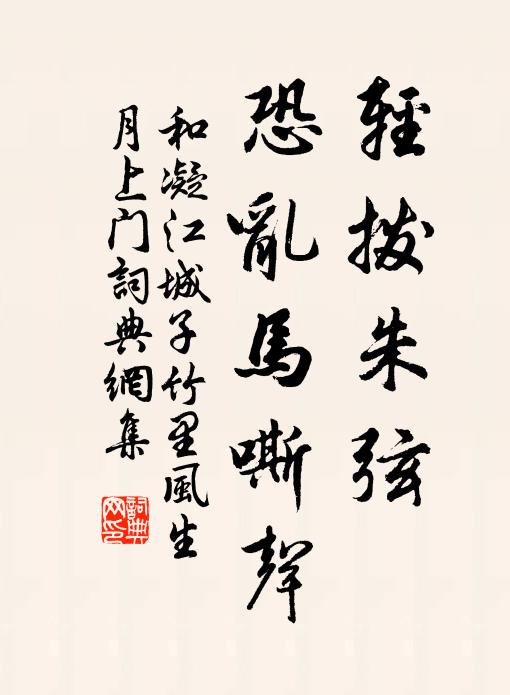 輕撥朱弦
恐亂馬嘶聲
和凝江城子竹里風生
月上门詞典網集
詞典
网印